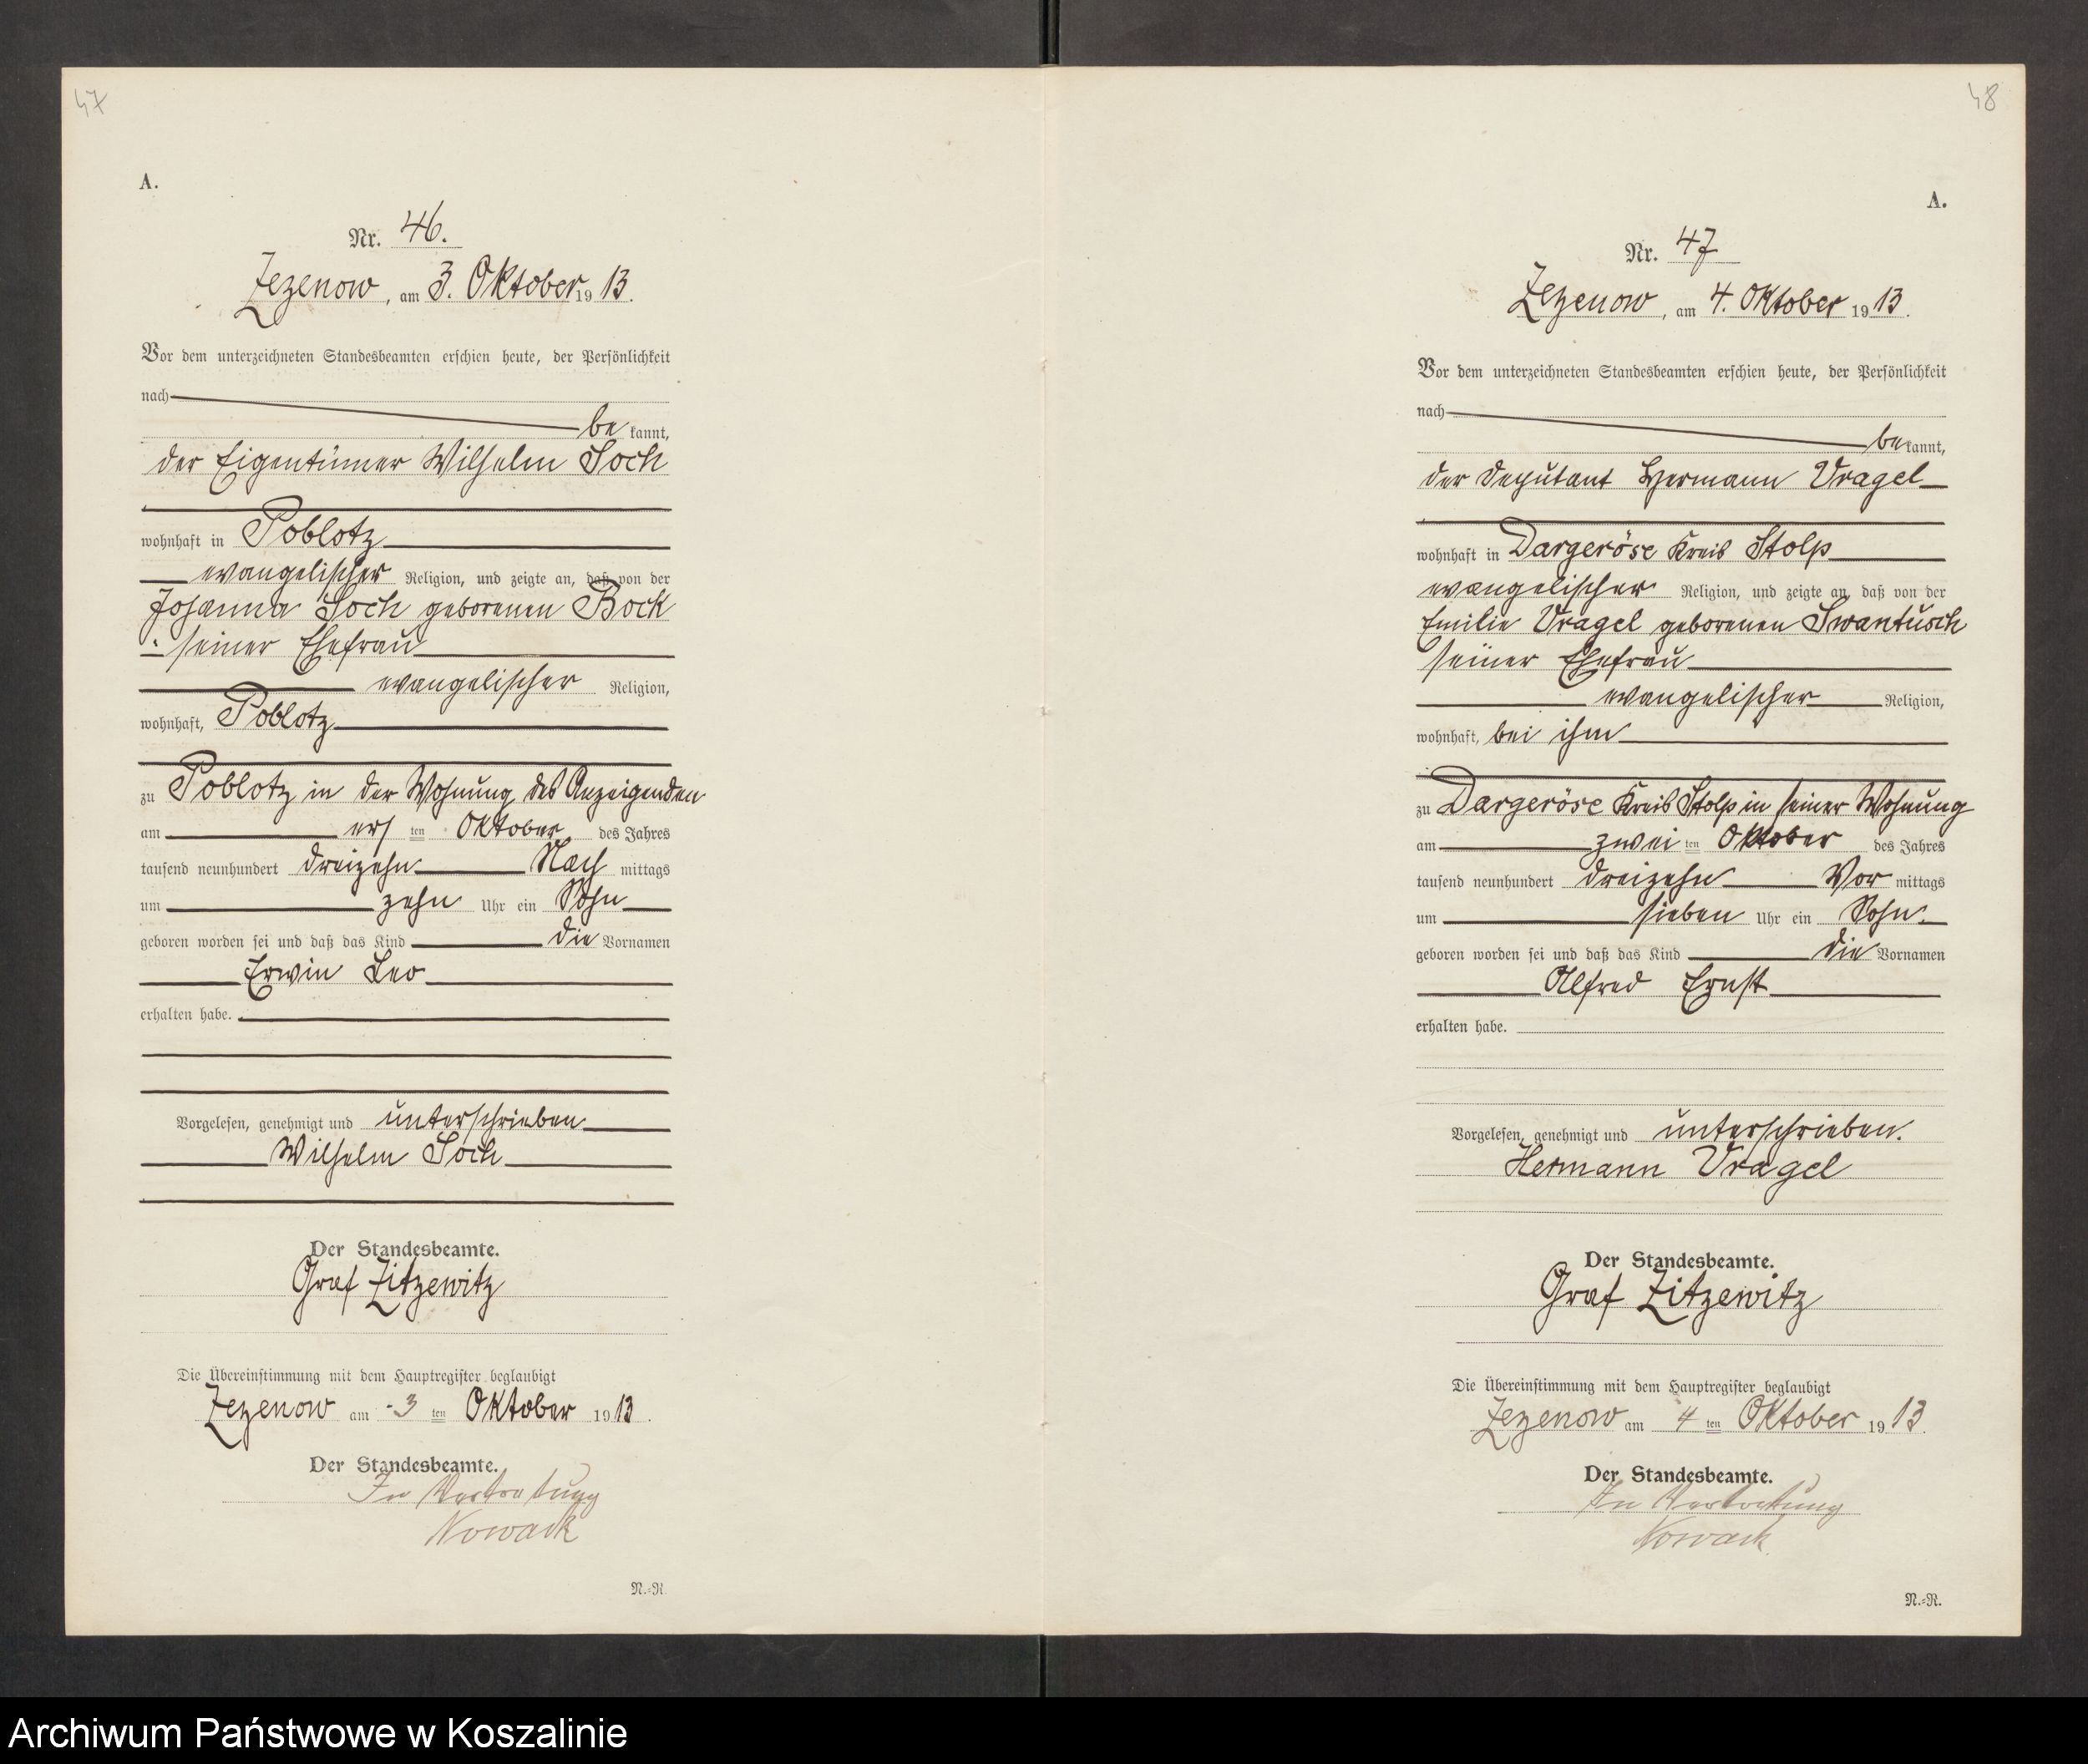 47
A.
Nr. 46.
Zezenow, am 3. Oktober 1913.
Vor dem unterzeichneten Standesbeamten erschien heute, der Persönlichkeit
nach
be kannt,
der Eigentümer Wilhelm Soch
wohnhaft in Poblotz
evangelischer Religion, und zeigte an, daß von der
Johanna Soch geborenen Bock
seiner Ehefrau
evangelischer Religion,
wohnhaft, Poblotz
zu Poblotz in der Wohnung des Anzeigenden
am ersten Oktober des Jahres
tausend neunhundert dreizehn Nachmittags
um zehn Uhr ein Sohn
geboren worden sei und daß das Kind die Vornamen
Erwin Leo
erhalten habe.
Vorgelesen, genehmigt und unterschrieben
Wilhelm Soch
Der Standesbeamte.
Graf Zitzewitz
Die Übereinstimmung mit dem Hauptregister beglaubigt
Zezenow am 3 ten Oktober 1913.
Der Standesbeamte.
In Vertretung
Nowack
N.-R.
48
A.
Nr. 47
Zezenow, am 4. Oktober 1913.
Vor dem unterzeichneten Standesbeamten erschien heute, der Persönlichkeit
nach
be kannt,
der Deputant Hermann Vragel
wohnhaft in Dargeröse Kreis Stolp
evangelischer Religion, und zeigte an, daß von der
Emilie Vragel geborenen Swantusch
seiner Ehefrau
evangelischer Religion,
wohnhaft, bei ihm
zu Dargeröse Kreis Stolp in seiner Wohnung
am zweiten Oktober des Jahres
tausend neunhundert dreizehn Vormittags
um sieben Uhr ein Sohn.
geboren worden sei und daß das Kind die Vornamen
Alfred Ernst
erhalten habe.
Vorgelesen, genehmigt und unterschrieben.
Hermann Vragel
Der Standesbeamte.
Graf Zitzewitz
Die Übereinstimmung mit dem Hauptregister beglaubigt
Zezenow am 4 ten Oktober 1913.
Der Standesbeamte.
In Vertretung
Nowack.
N.-R.
Archiwum Państwowe w Koszalinie